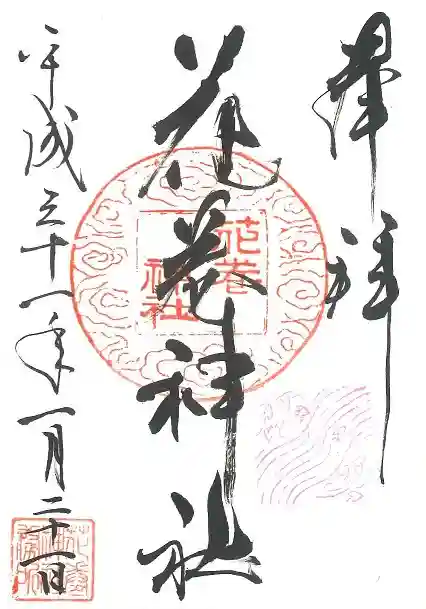 奉拝
花巻神社
花巻
神社
平成三十一年一月二十一日